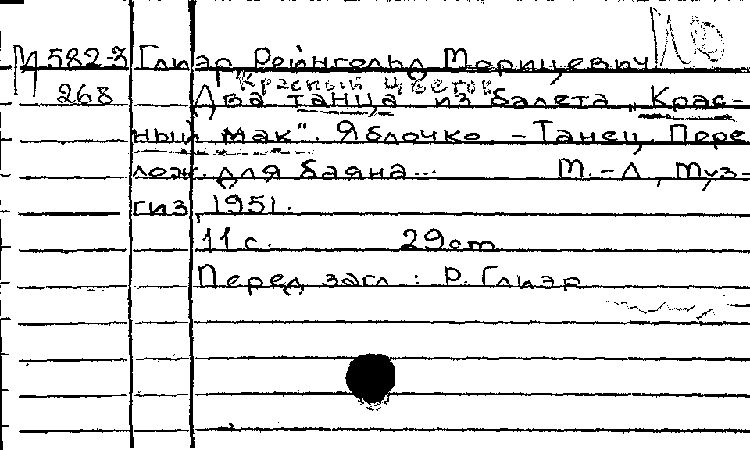 М 582-3 Глиэр Рейнгольд Морицевич
268 Красный цветок
Два танца из балета „Крас-
ный мак". Яблочко - Танец. Пере
лож. для баяна... М.-Л, Муз-
гиз, 1951.
11 с. 29 cm
Перед загл: Р. Глиэр